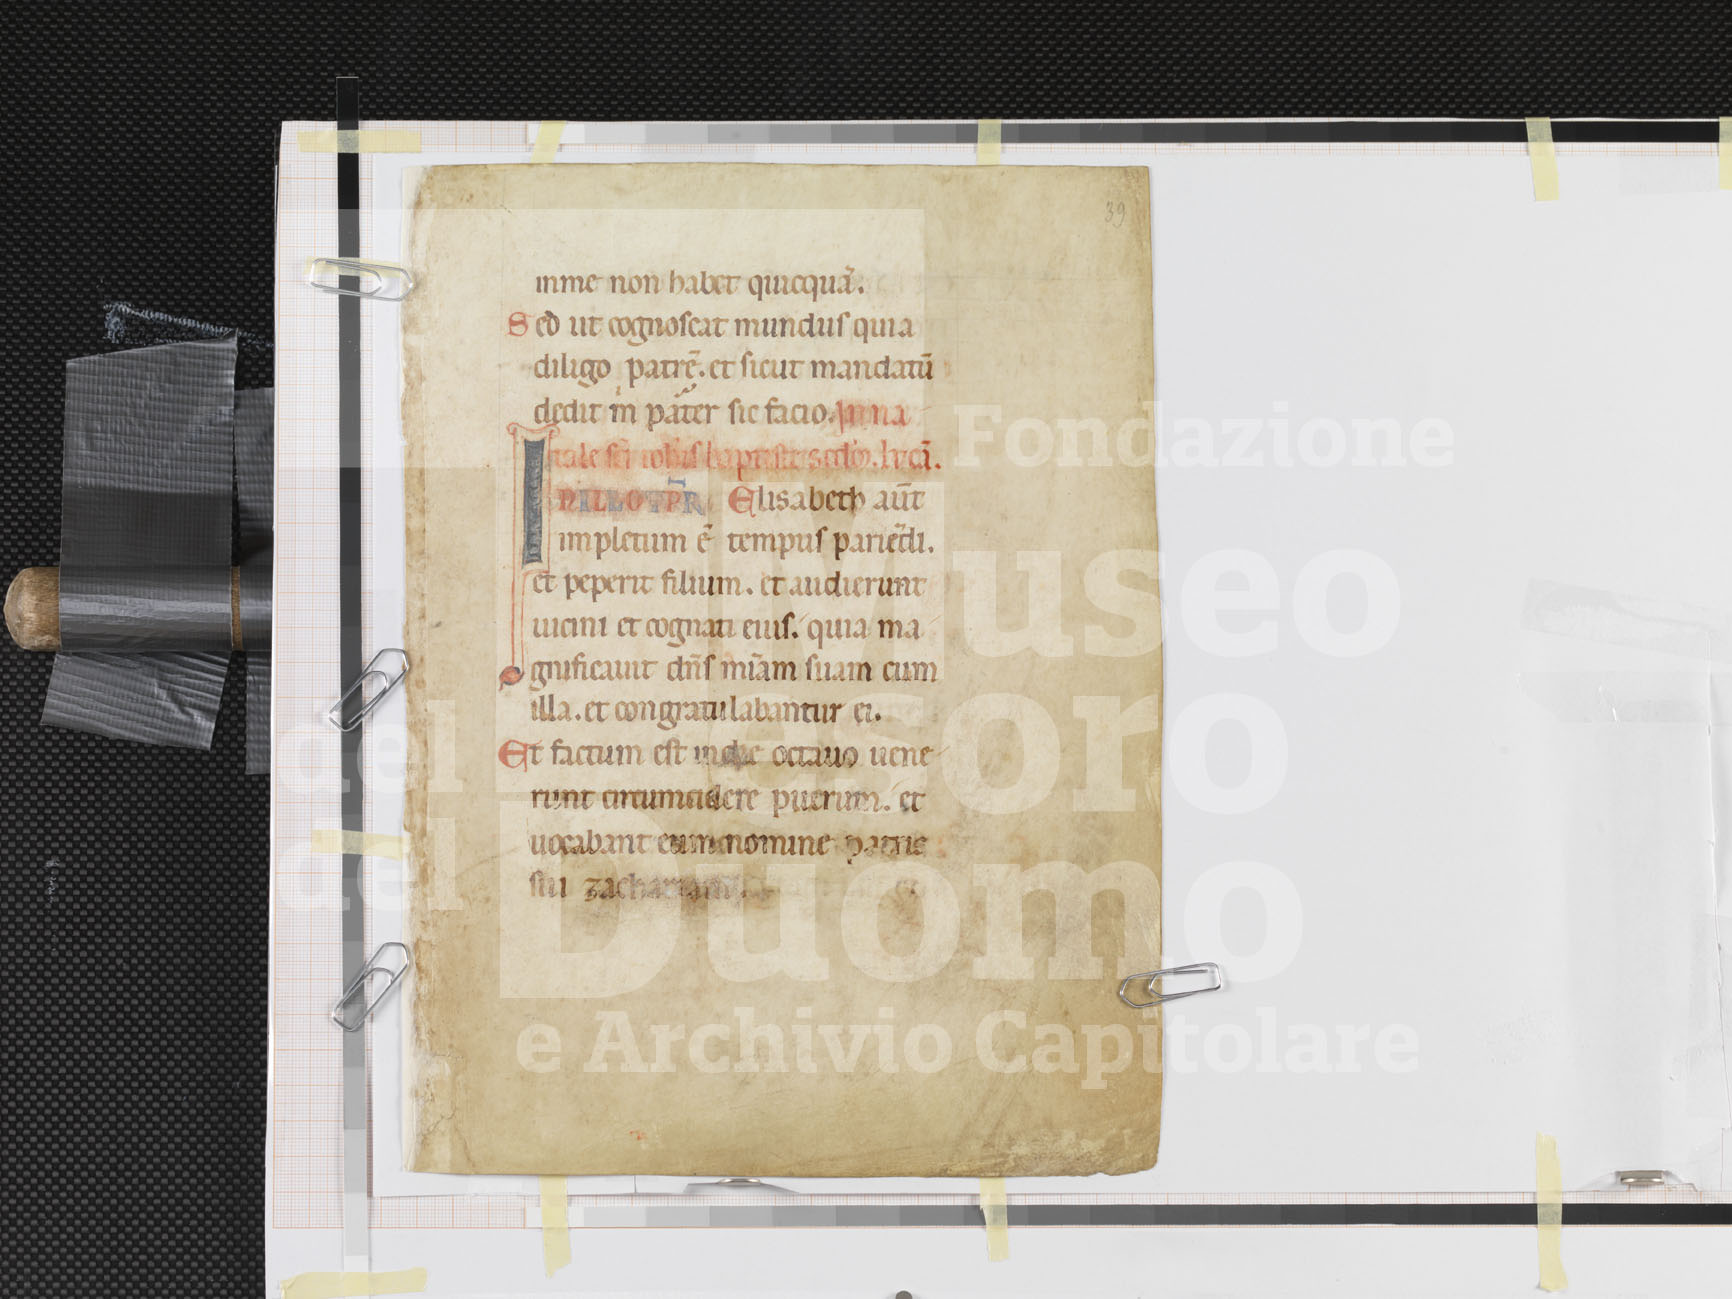 39
inme non habet quicquā.
Sed ut cognoscat mundus quia
diligo patrē. et sicut mandatū
dedit m̄ pater sic facio. In na
tale sc̄i ioh̄is baptiste scd̄m. lucā.
IN ILLO TP̄R. Elisabeth aūt
impletum ē tempus pariēdi.
et peperit filium. et audierunt
uicini et cognati eius. quia ma
gnificauit dn̄s mīam suam cum
illa. et congratulabantur ei.
Et factum est in die octauo uene
runt circumcidere puerum. et
uocabant eum nomine patris
sui zachariam.
Fondazione
Museo
del Tesoro
del Duomo
e Archivio Capitolare